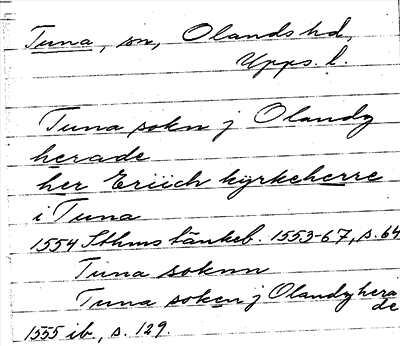 Tuna, sn, Olands hd,
Upps. l.
Tuna sokn j Olandz
herade
her Eriich kyrkeherre
i Tuna
1554 Sthms tänkeb. 1553-67, s. 64
Tuna soknn
Tuna soken j Olandz hera
de
1555 ib., s. 129.